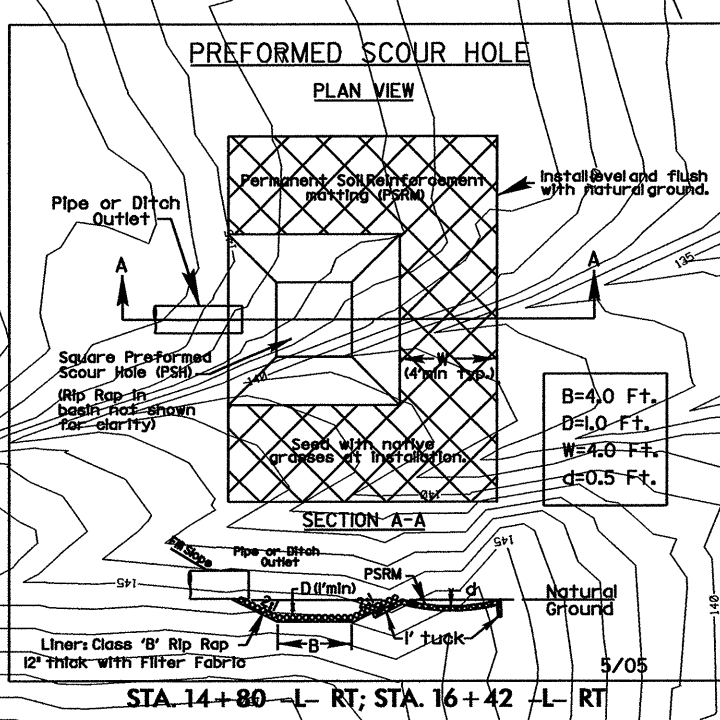 PREFORMED SCOUR HOLE
PLAN VIEW
Permanent Soil Reinforcement
matting (PSRM)
Install level and flush
with natural ground.
Pipe or Ditch
Outlet
A
A
135
Square Preformed
Scour Hole (PSH)
(Rip Rap in
basin not shown
for clarity)
140
W
(4' min typ.)
B=4.0 Ft.
D=1.0 Ft.
W=4.0 Ft.
d=0.5 Ft.
Seed with native
grasses at installation.
140
SECTION A-A
145
Fill Slope
Pipe or Ditch
Outlet
145
D (1' min)
PSRM
d
Natural
Ground
140
Liner: Class 'B' Rip Rap
12" thick with Filter Fabric
B
1' tuck
5/05
STA. 14+80 -L- RT; STA. 16+42 -L- RT